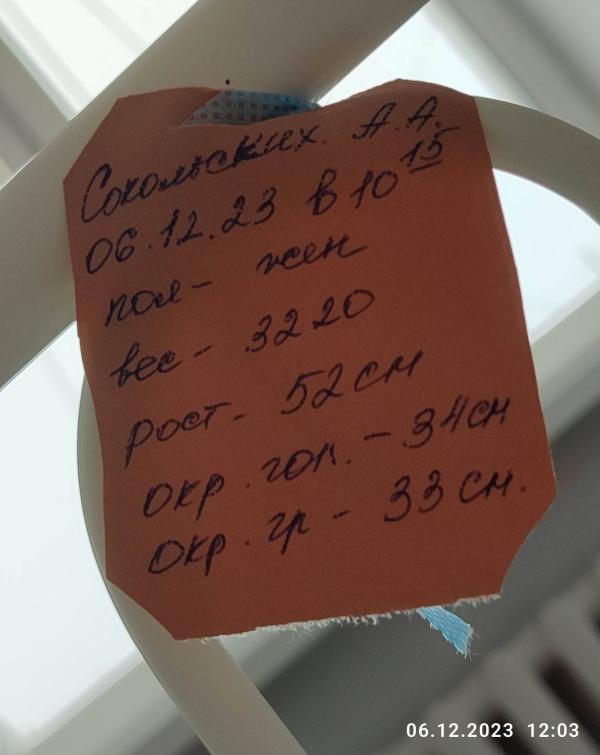 Сокольских А.А.
06.12.23 в 10 15
пол - жен
вес - 3220
рост - 52 см
окр. гол. - 34 см
окр. гр - 33 см.
06.12.2023 12:03